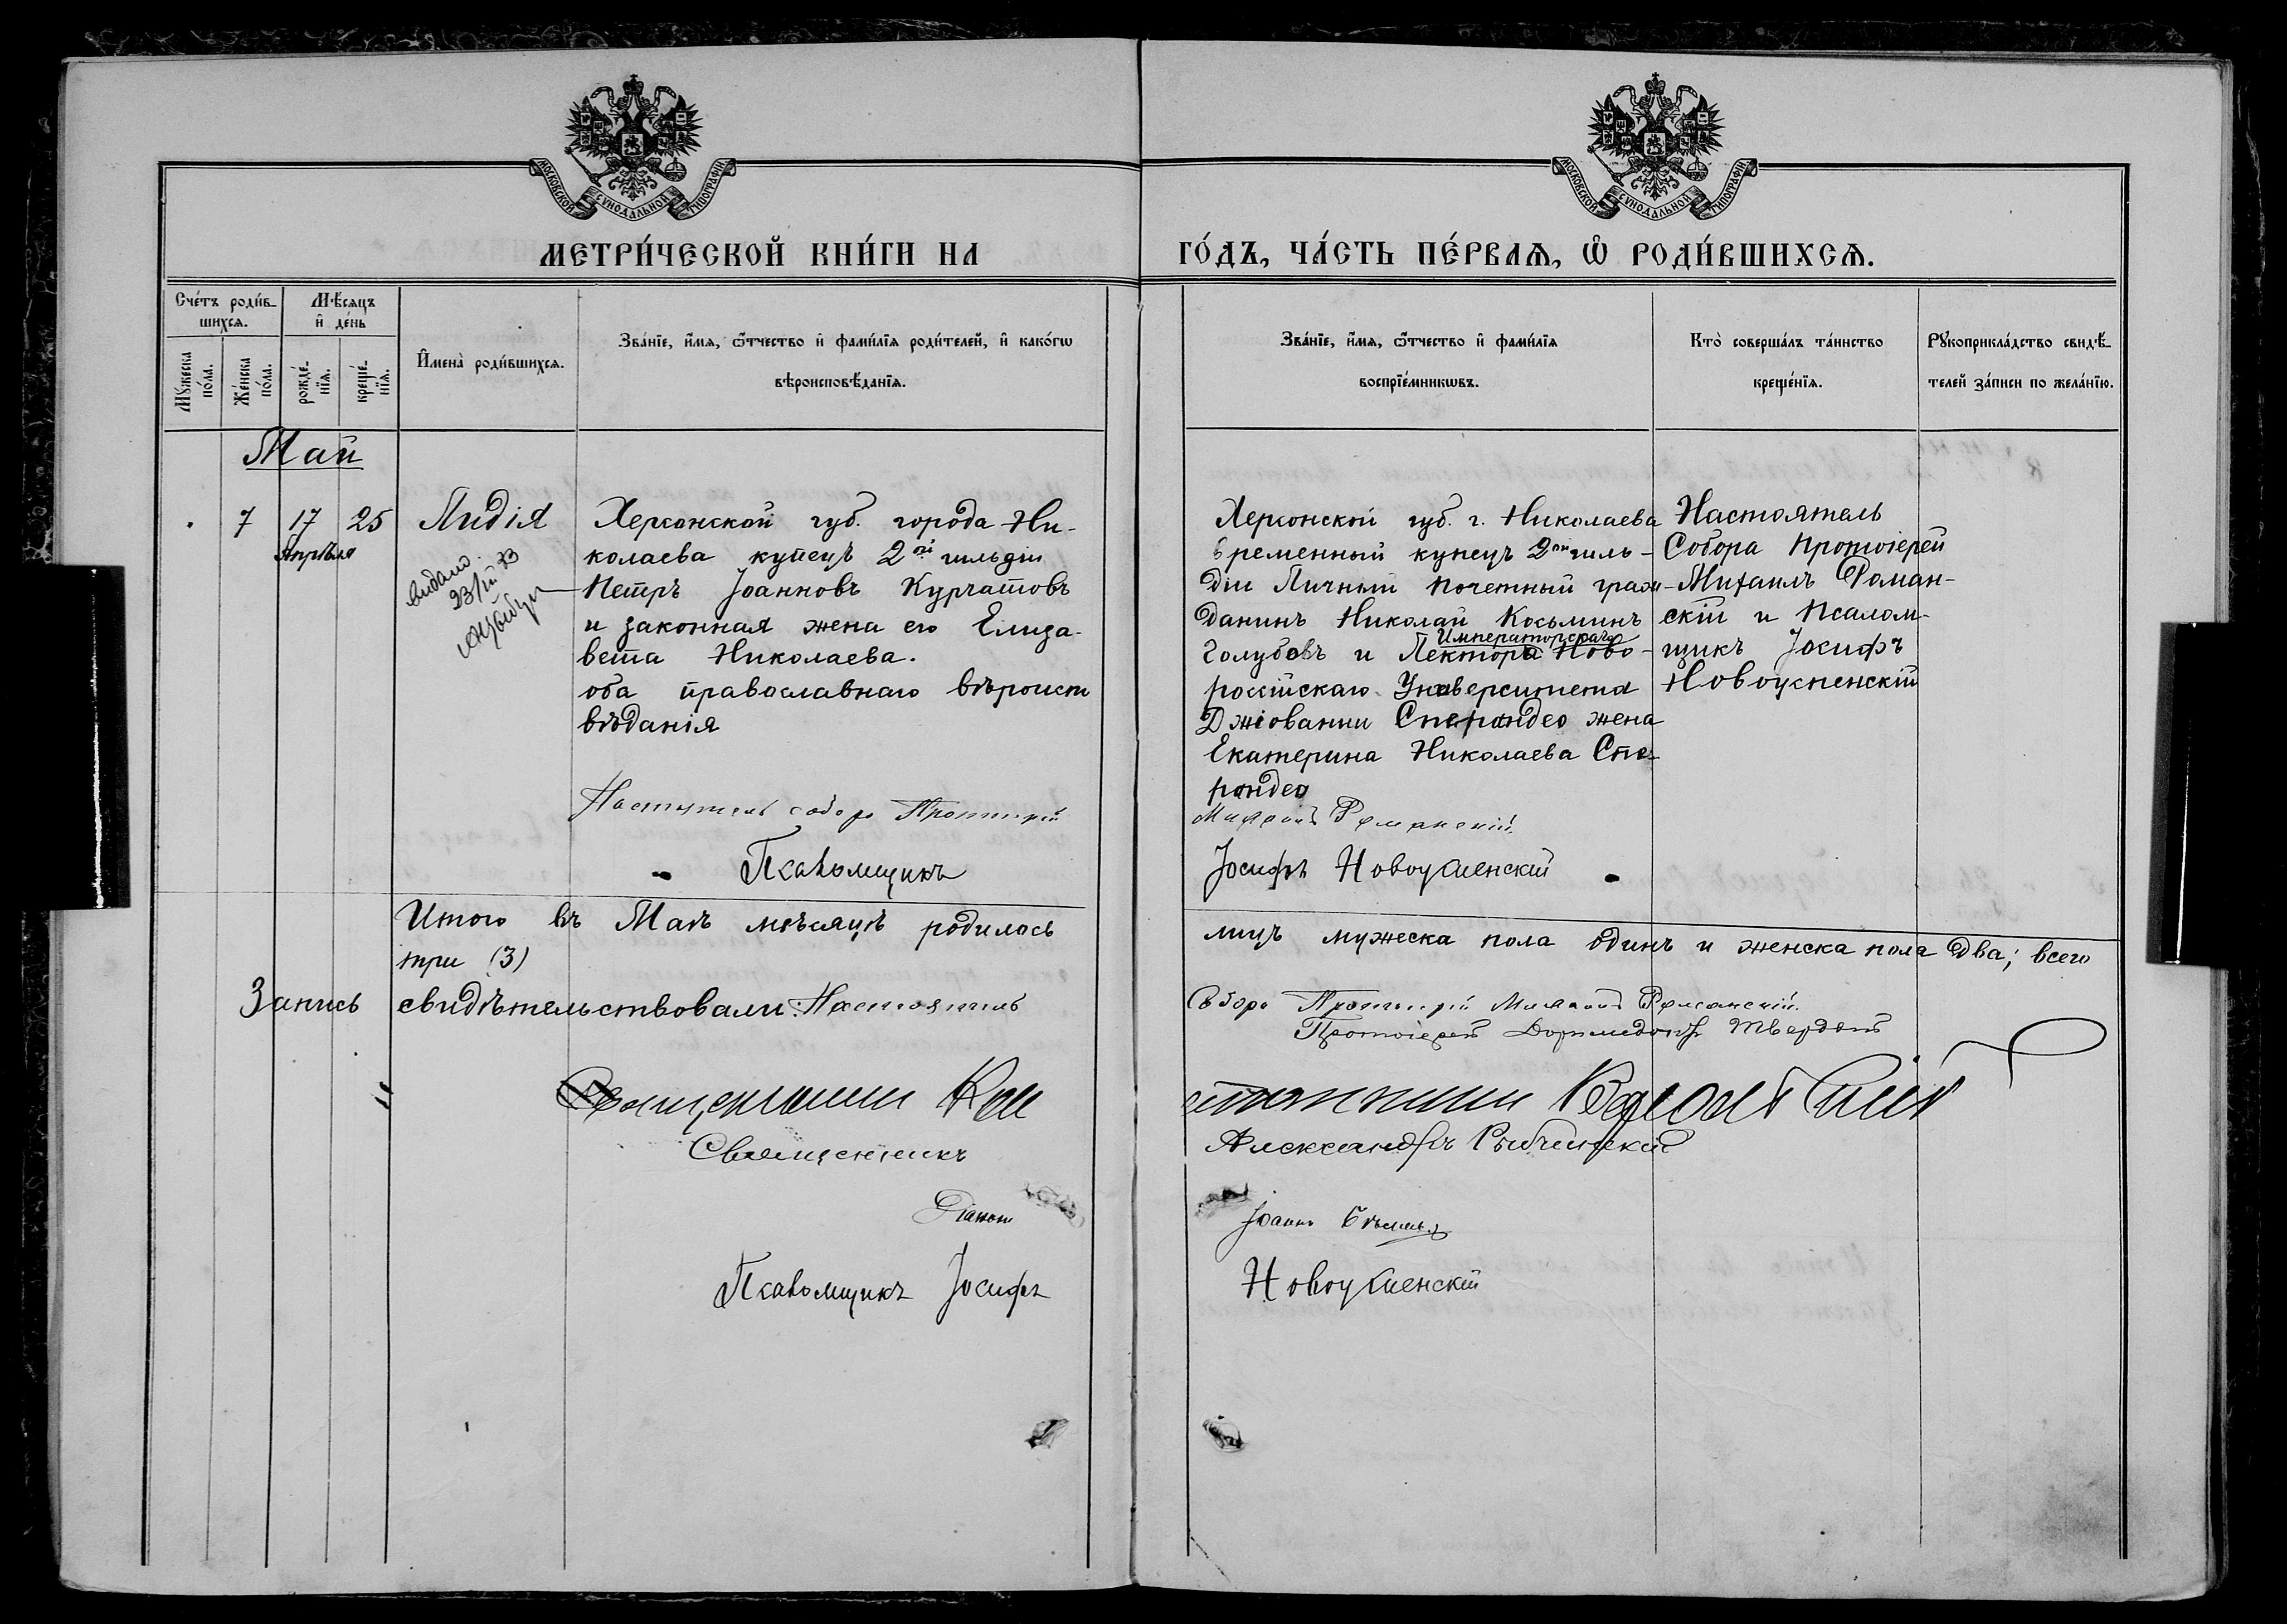 МОСКОВСКОЙ СѴНОДАЛЬНОЙ ТИПОГРАФІИ
МОСКОВСКОЙ СѴНОДАЛЬНОЙ ТИПОГРАФІИ
МЕТРИ́ЧЕСКОЙ КНИ́ГИ НА
ГО́ДЪ, ЧА́СТЬ ПЕ́РВАѦ, Ѡ҆ РОДИ́ВШИХСѦ.
Сче́тъ роди́в-
шихсѧ.
Мѣ́сѧцъ
и҆ де́нь
Мꙋ́жеска
по́ла.
Же́нска
по́ла.
рожде́-
нїѧ.
креще́-
нїѧ.
И҆мена̀ роди́вшихсѧ.
Зва́нїе, и҆́мѧ, ѻ҆́тчество и҆ фами́лїѧ роди́телей, и҆ како́гѡ
вѣроисповѣ́данїѧ.
Зва́нїе, и҆́мѧ, ѻ҆́тчество и҆ фами́лїѧ
воспрїе́мникѡвъ.
Кто̀ соверша́лъ та́инство
креще́нїѧ.
Рꙋкоприкла́дство свидѣ́-
телей за́писи по жела́нїю.
Май
7 17 25
Апрѣля
Лидія
Выдано
Херсонской губ. города Ни-
колаева купецъ 2ой гильдіи
Петръ Іоанновъ Курчатовъ
и законная жена его Елиза-
вета Николаева.
оба православнаго вѣроиспо
вѣданія
Херсонской губ. г. Николаева
временный купецъ 2ой гиль-
діи Личный почетный граж-
данинъ Николай Косьминъ
Голубовъ и Лектора Императорскаго Ново-
россійскаго Университета
Джіованни Сперандео жена
Екатерина Николаева Спе-
рандео
Настоятель
Собора Протоіерей
Михаилъ Роман-
скій и Псалом-
щикъ Іосифъ
Новоуспенскій
Настоятель собора Протоіерей
Михаилъ Романскій.
Псаломщикъ
Іосифъ Новоуспенскій
Итого въ Маѣ мѣсяцѣ родилось
лицъ мужеска пола одинъ и женска пола два; всего
три (3)
Запись свидѣтельствовали: Настоятель
Собора Протоіерей Михаилъ Романскій.
Протоіерей Доримедонтъ Твердый
Священникъ Кон
стантинъ
Священникъ
Александръ Рыбчинскій
Діакон
Іоаннъ
Псаломщикъ Іосифъ
Новоуспенскій